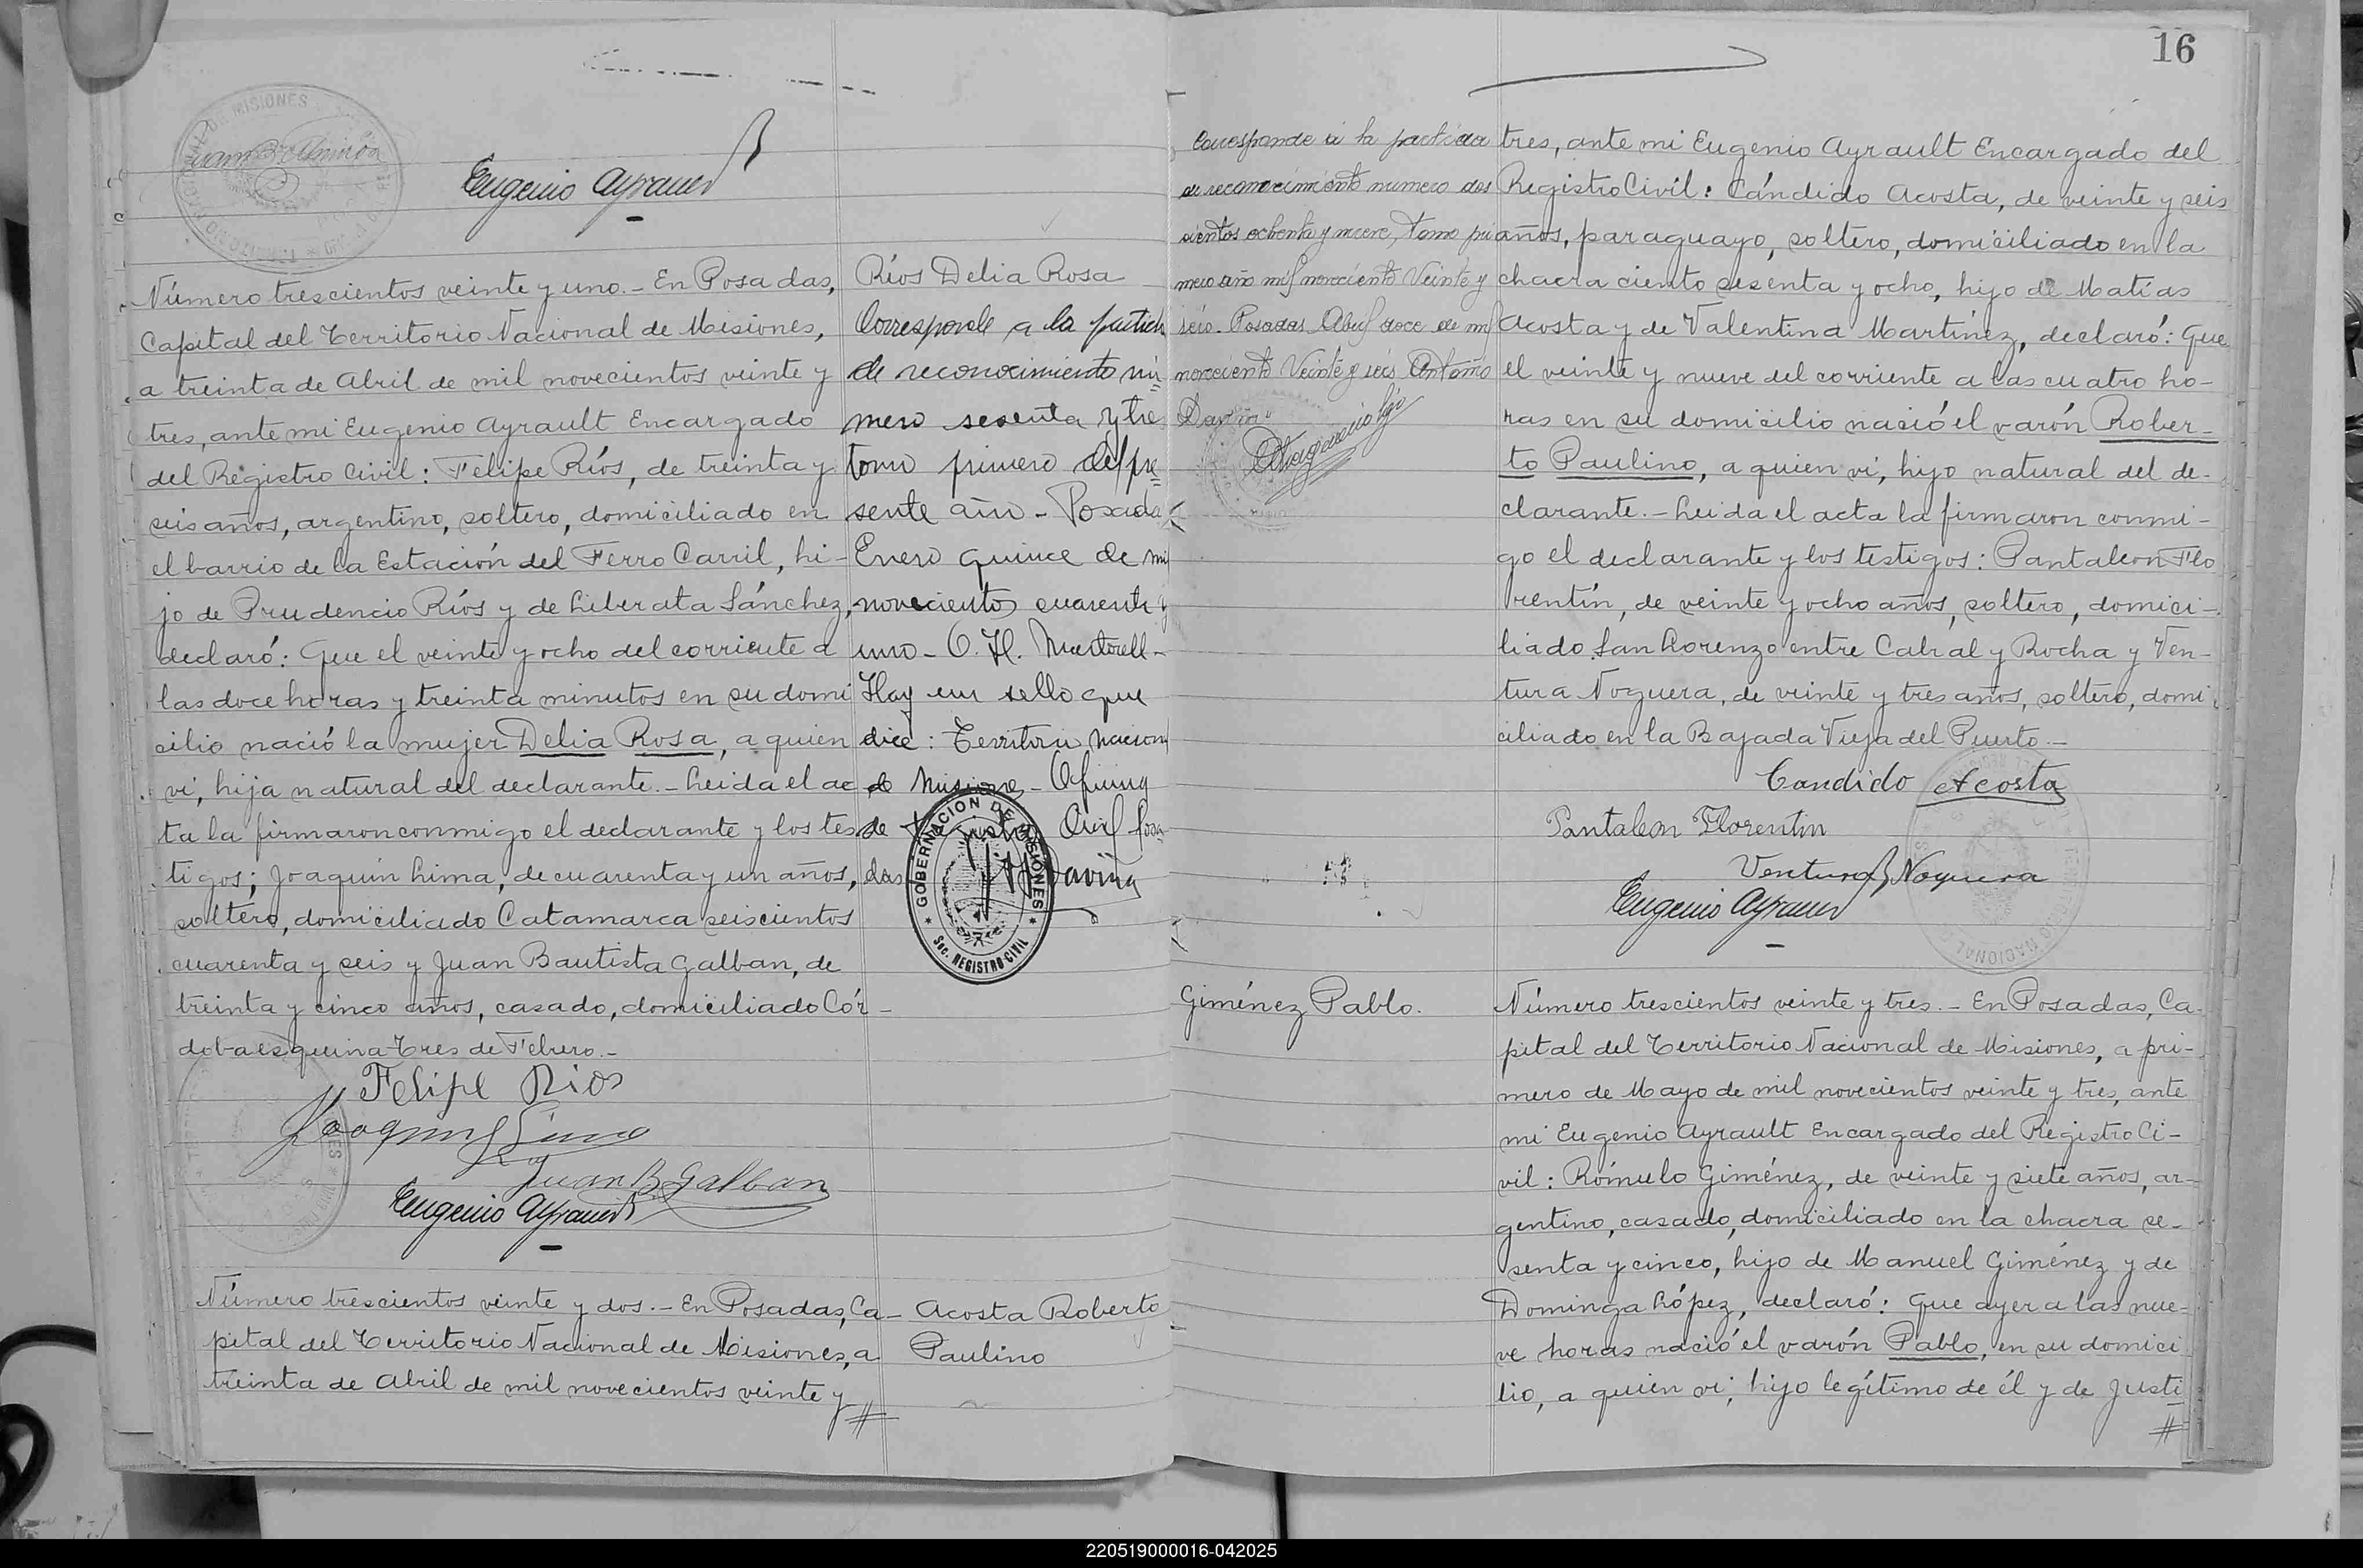 16
Juan B. Amirón
Eugenio Ayrault
Número trescientos veinte y uno.- En Posadas,
Capital del Territorio Nacional de Misiones,
a treinta de Abril de mil novecientos veinte y
tres, ante mi Eugenio Ayrault Encargado
del Registro Civil: Felipe Ríos, de treinta y
seis años, argentino, soltero, domiciliado en
el barrio de la Estación del Ferro Carril, hi-
jo de Prudencio Ríos y de Liberata Sánchez,
declaró: Que el veinte y ocho del corriente a
las doce horas y treinta minutos en su domi
cilio nació la mujer Delia Rosa, a quien
vi, hija natural del declarante.- Leida el ac
ta la firmaron conmigo el declarante y los tes
tigos; Joaquín Lima, de cuarenta y un años,
soltero, domiciliado Catamarca seiscientos
cuarenta y seis y Juan Bautista Galban, de
treinta y cinco años, casado, domiciliado Cór-
doba esquina Tres de Febrero.-
Felipe Rios
Joaquin Lima
Juan B. Galban
Eugenio Ayrault
Ríos Delia Rosa
Corresponde a la partida
de reconocimiento nú=
mero sesenta y tres
tomo primero del pre=
sente año - Posadas
Enero quince de mil
novecientos cuarenta y
uno - O. H. Martorell -
Hay un sello que
dice: Territorio Nacional
de Misiones - Oficina
de Civil Posa
das
GOBERNACION DE MISIONES
Sec. REGISTRO CIVIL
Número trescientos veinte y dos.- En Posadas, Ca-
pital del Territorio Nacional de Misiones, a
treinta de Abril de mil novecientos veinte y
Acosta Roberto
Paulino
Corresponde á la partida
de reconocimiento numero dos
cientos ochenta y nueve, Tomo pri
mero año mil novecientos Veinte y
séis. Posadas Abril doce de mil
novecientos Veinte y seis Antonio
tres, ante mi Eugenio Ayrault Encargado del
Registro Civil: Cándido Acosta, de veinte y seis
años, paraguayo, soltero, domiciliado en la
chacra ciento sesenta y ocho, hijo de Matías
Acosta y de Valentina Martínez, declaró: Que
el veinte y nueve del corriente a las cuatro ho-
ras en su domicilio nació el varón Rober-
to Paulino, a quien vi, hijo natural del de-
clarante.- Leida el acta la firmaron conmi-
go el declarante y los testigos: Pantaleon Flo
rentín, de veinte y ocho años, soltero, domici-
liado San Lorenzo entre Cabral y Rocha y Ven-
tura Noguera, de veinte y tres años, soltero, domi
ciliado en la Bajada Vieja del Puerto.-
Candido Acosta
Pantaleon Florentin
Ventura Noguera
Eugenio Ayrault
Giménez Pablo.
Número trescientos veinte y tres.- En Posadas, Ca-
pital del Territorio Nacional de Misiones, a pri-
mero de Mayo de mil novecientos veinte y tres, ante
mi Eugenio Ayrault Encargado del Registro Ci-
vil: Rómulo Giménez, de veinte y siete años, ar-
gentino, casado, domiciliado en la chacra se-
senta y cinco, hijo de Manuel Giménez y de
Dominga López, declaró: Que ayer a las nue-
ve horas nació el varón Pablo, en su domici
lio, a quien vi; hijo legítimo de él y de Justi
220519000016-042025